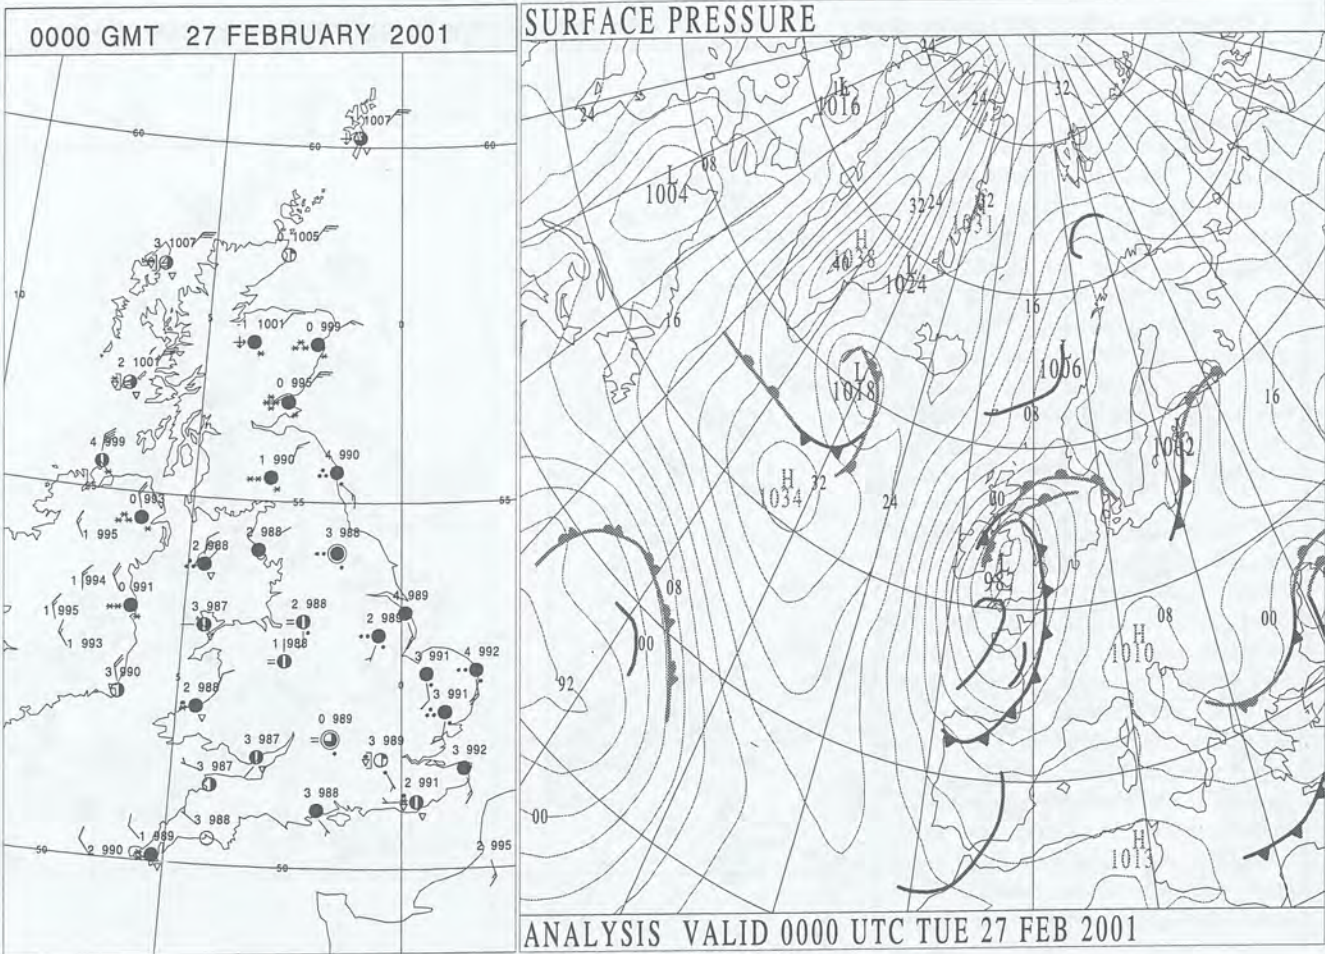 0000 GMT 27 FEBRUARY 2001
60
60
1007
0 1005
3 1007
10
5
0
1 1001
0 999
2 1001
0 995
4 999
4 990
1 990
55
55
0 993
1 995
2 988
2 988
3 988
1 994
0 991
1 995
4 989
3 987
2 988
2 989
1 993
1 988
3 990
3 991
4 992
5
2 988
0
3 991
0 989
3 987
3 989
3 992
3 987
2 991
3 988
3 988
1 989
50
2 990
2 995
50
SURFACE PRESSURE
24
L
1016
32
24
24
L
1004
08
32
24
32
1031
H
1038
40
L
1024
16
16
L
1006
L
1018
08
16
L
1002
H
1034
32
24
00
L
987
08
08
00
00
H
1010
92
00
H
1013
ANALYSIS VALID 0000 UTC TUE 27 FEB 2001